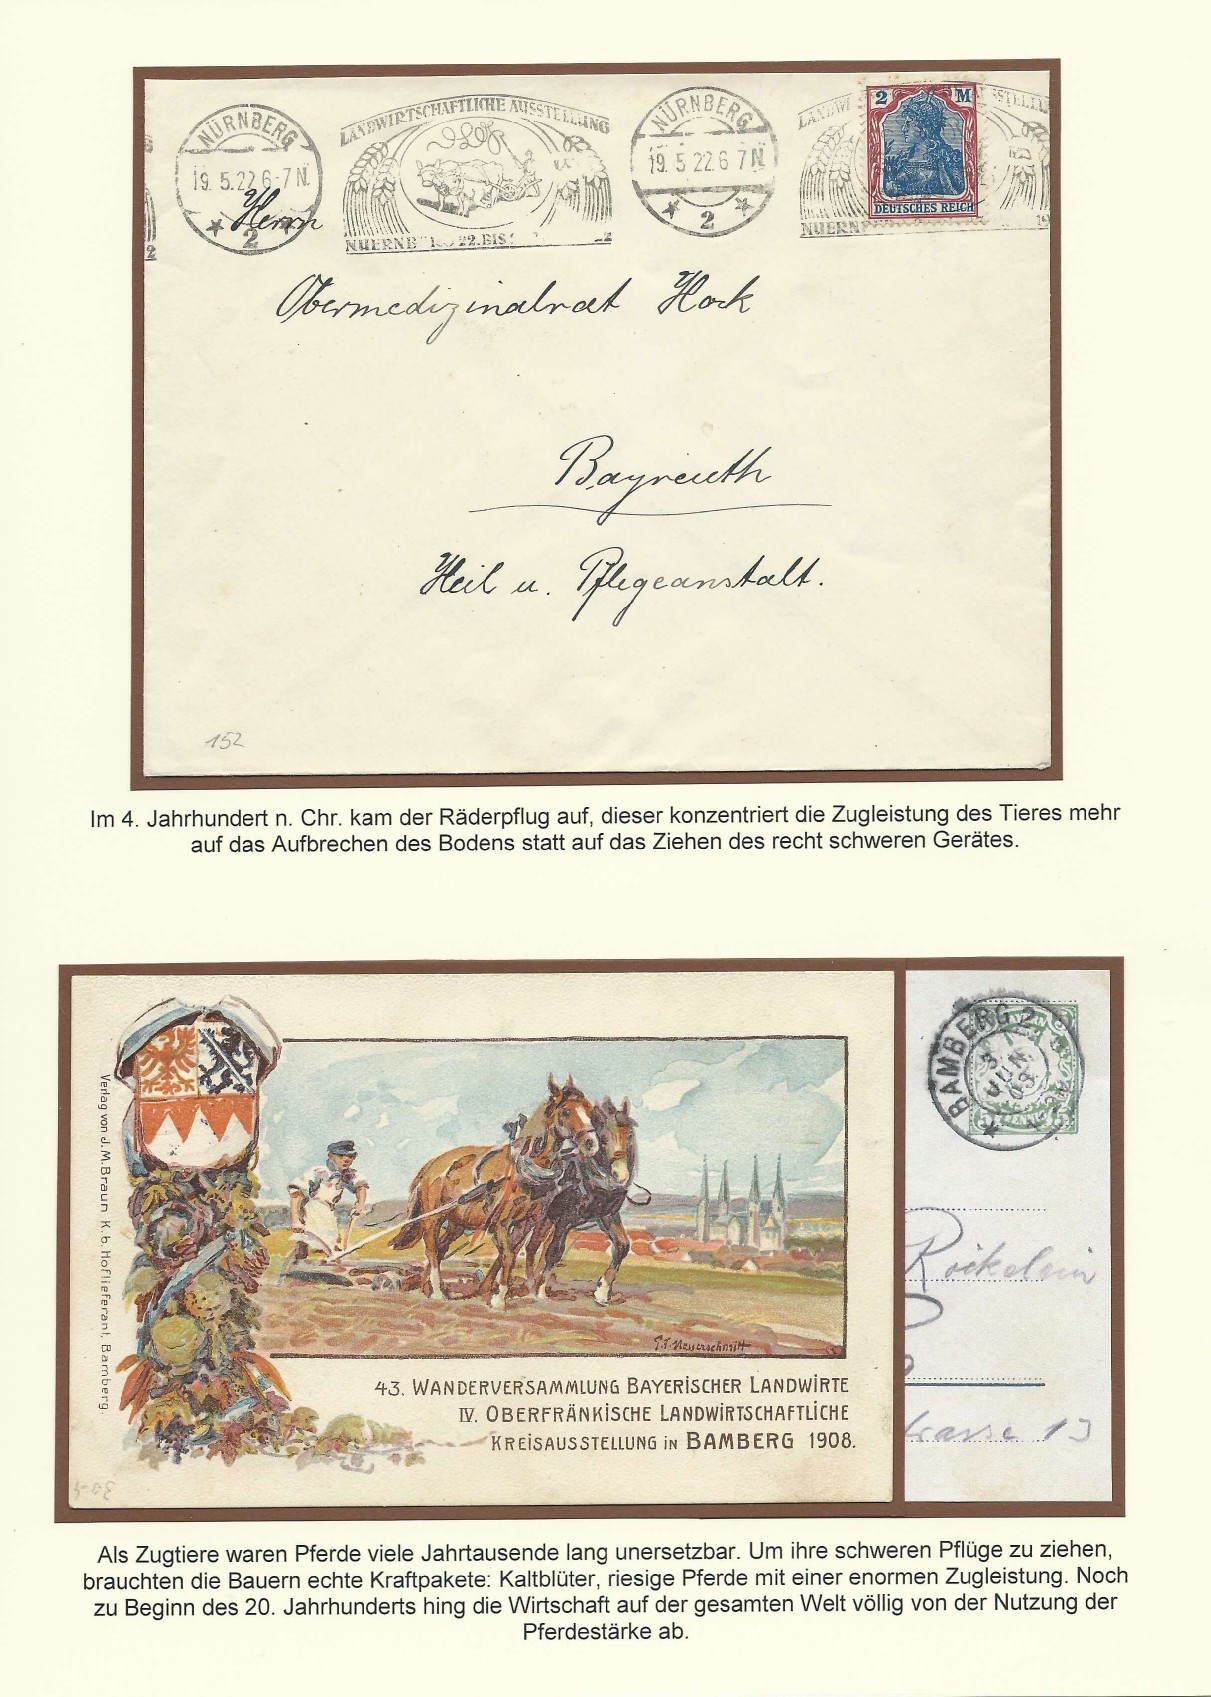 NÜRNBERG
19.5.22.6-7N.
2
LANDWIRTSCHAFTLICHE AUSSTELLUNG
DLG
22.BIS
NÜRNBERG
19.5.22.6 7N.
2
2 M
DEUTSCHES REICH
Herrn
Obermedizinalrat Hock
Bayreuth
Heil u. Pflegeanstalt.
152
Im 4. Jahrhundert n. Chr. kam der Räderpflug auf, dieser konzentriert die Zugleistung des Tieres mehr
auf das Aufbrechen des Bodens statt auf das Ziehen des recht schweren Gerätes.
Verlag von J.M.Braun K.b. Hoflieferant, Bamberg.
43. WANDERVERSAMMLUNG BAYERISCHER LANDWIRTE
IV. OBERFRÄNKISCHE LANDWIRTSCHAFTLICHE
KREISAUSSTELLUNG IN BAMBERG 1908.
BAMBERG 2
3
JUN
08
Röckelein
trasse 13
Als Zugtiere waren Pferde viele Jahrtausende lang unersetzbar. Um ihre schweren Pflüge zu ziehen,
brauchten die Bauern echte Kraftpakete: Kaltblüter, riesige Pferde mit einer enormen Zugleistung. Noch
zu Beginn des 20. Jahrhunderts hing die Wirtschaft auf der gesamten Welt völlig von der Nutzung der
Pferdestärke ab.